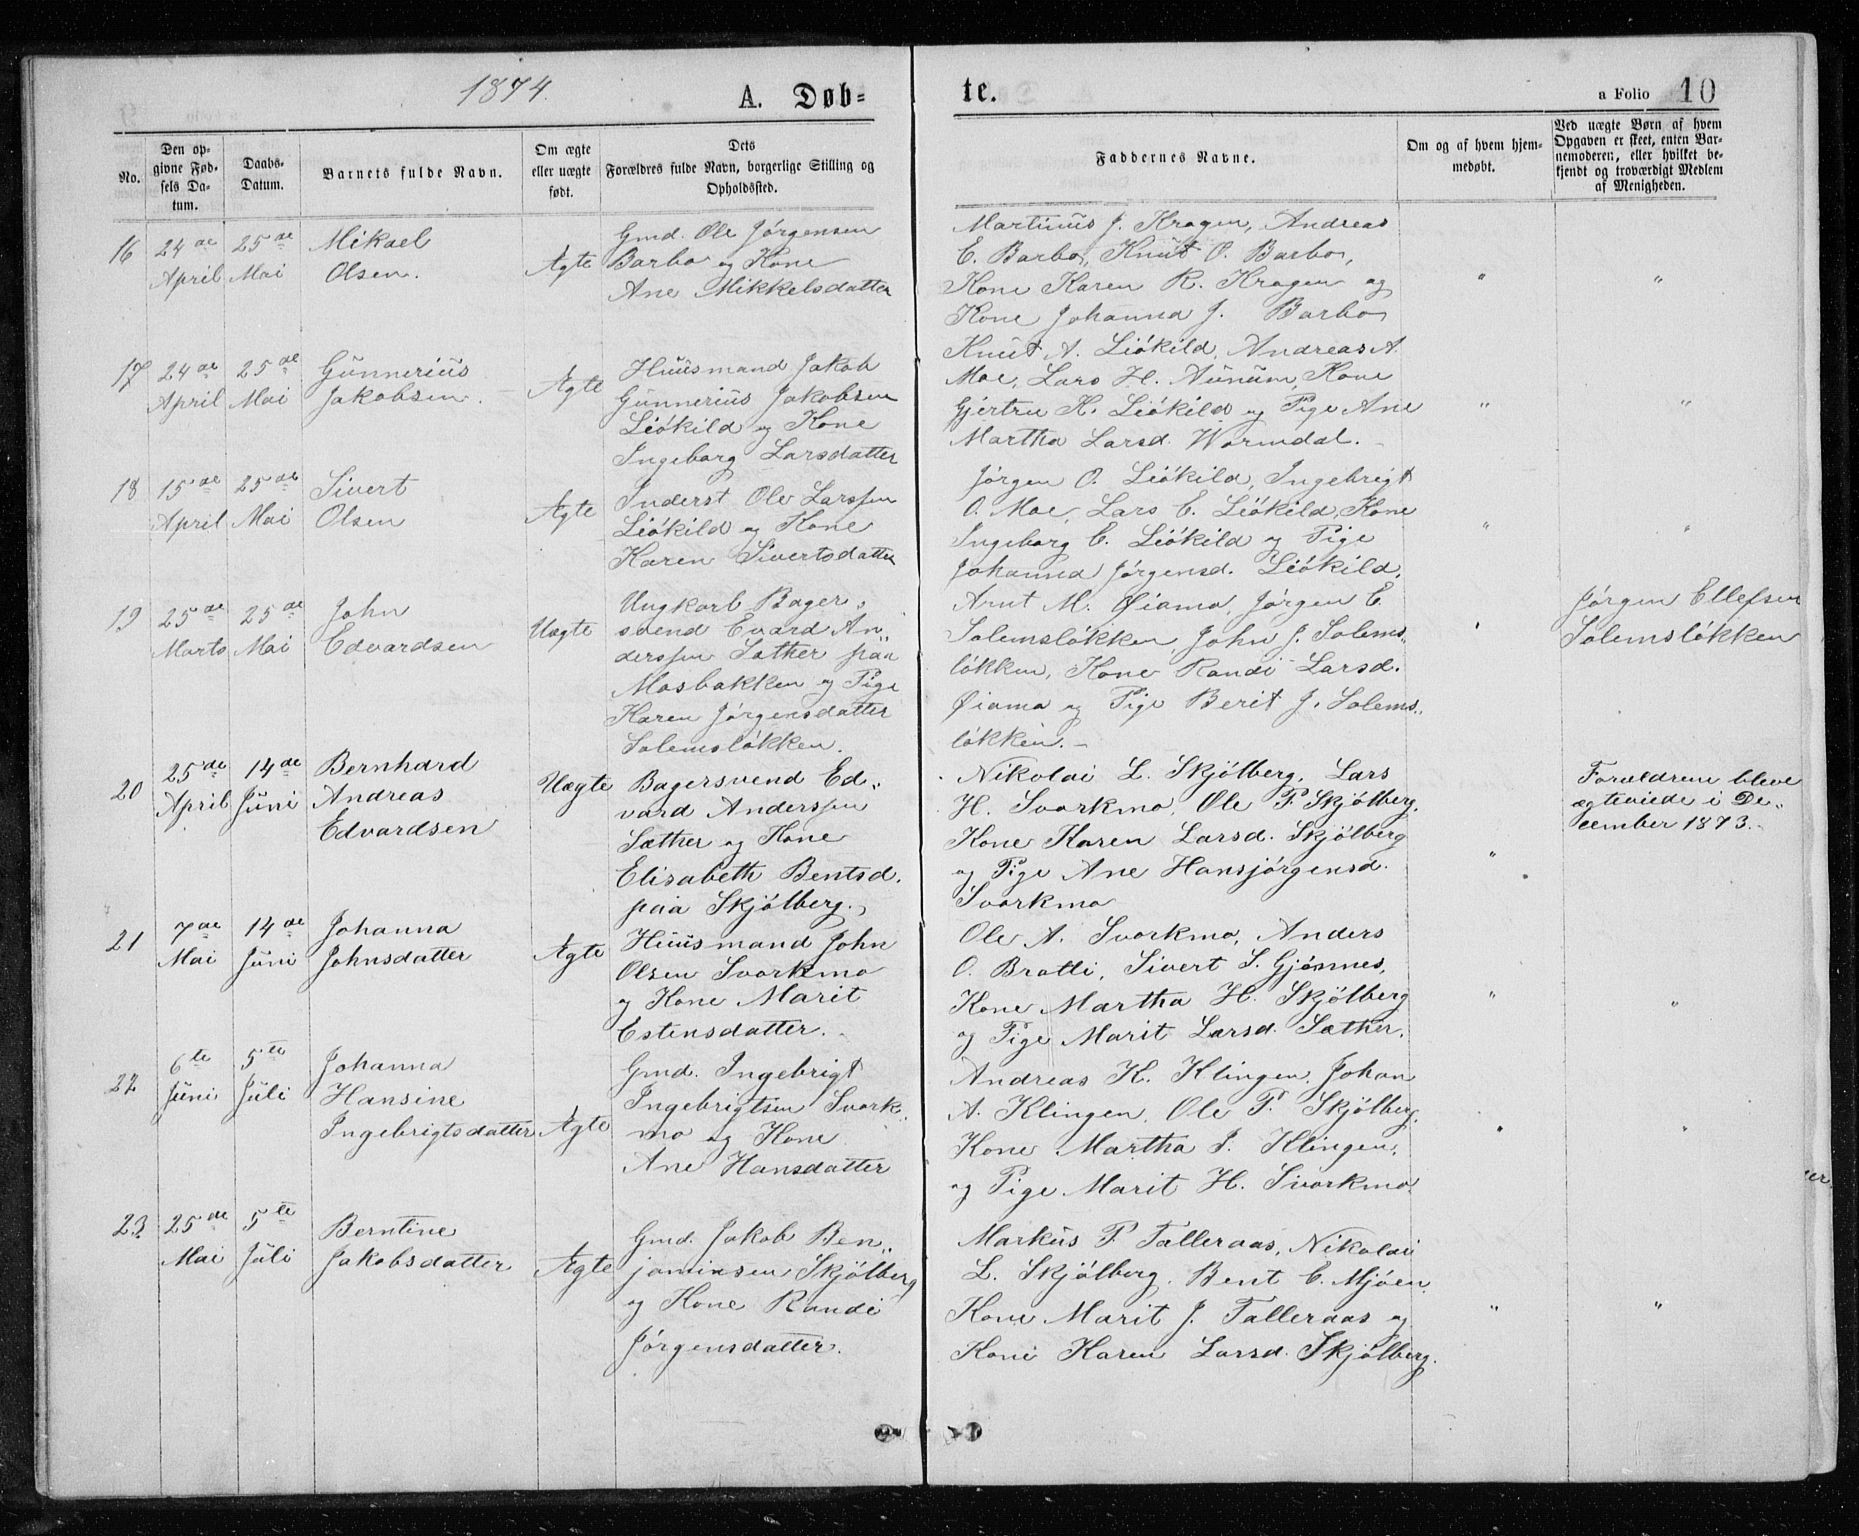 1874.
A. Døb-
te.
a Folio 10
No.
Den op-
givne Fød-
sels Da-
tum.
Daabs-
Datum.
Barnets fulde Navn.
Om ægte
eller uægte
født.
Dets
Forældres fulde Navn, borgerlige Stilling og
Opholdssted.
Faddernes Navne.
Om og af hvem hjem-
medøbt.
Ved uægte Børn af hvem
Opgaven er skeet, enten Bar-
nemoderen, eller hvilket be-
kjendt og troværdigt Medlem
af Menigheden.
16
24de
April
25de
Mai
Mikael
Olsen.
Ægte
Gmd. Ole Jörgensen
Barbo og Kone
Ane Mikkelsdatter
Martinus J. Kragen, Andreas
E. Barbo, Knut O. Barbo,
Kone Karen R. Kragen og
Kone Johanna J. Barbo
"
"
17
24de
April
25de
Mai
Gunnerius
Jakobsen.
Ægte
Huusmand Jakob
Gunnerius Jakobsen
Liökild og Kone
Ingeborg Larsdatter
Knut A. Liökild, Andreas A.
Moe, Lars H. Aunum, Kone
Gjertru K. Liökild og Pige Ane
Martha Larsd. Wormdal.
"
"
18
15de
April
25de
Mai
Sivert
Olsen
Ægte
Inderst Ole Larssen
Liökild og Kone
Karen Sivertsdatter
Jörgen O. Liökild, Ingebrigt
O. Moe, Lars E. Liökild, Kone
Ingeborg E. Liökild og Pige
Johanna Jörgensd. Liökild.
"
"
19
25de
Marts
25de
Mai
John
Edvardsen
Uægte
Ungkarl Bager-
svend Evard An-
derssen Sæther paa
Mosbakken og Pige
Karen Jörgensdatter
Solemslökken.
Arnt M. Øiamo, Jörgen E.
Solemslökken, John J. Solems-
lökken, Kone Randi Larsd.
Øiamo og Pige Berit J. Solems-
lökken.
"
Jörgen Ellefsen
Solemslökken
20
25de
April
14de
Juni
Bernhard
Andreas
Edvardsen
Uægte
Bagersvend Ed-
vard Anderssen
Sæther og Kone
Elisabeth Bentsd.
paa Skjölberg.
Nikolai L. Skjölberg, Lars
H. Svorkmo, Ole P. Skjölberg,
Kone Karen Larsd. Skjölberg
og Pige Ane Hansjörgensd.
Svorkmo
"
Forældrene bleve
ægteviede i De-
cember 1873.
21
7de
Mai
14de
Juni
Johanna
Johnsdatter
Ægte
Huusmand John
Olsen Svorkmo
og Kone Marit
Estensdatter.
Ole A. Svorkmo, Anders
O. Bratli, Sivert S. Gjönnes,
Kone Martha H. Skjölberg
og Pige Marit Larsd. Sæther.
"
"
22
6te
Juni
5te
Juli
Johanna
Hansine
Ingebrigtsdatter
Ægte
Gmd. Ingebrigt
Ingebrigtsen Svork-
mo og Kone
Ane Hansdatter
Andreas K. Klingen, Johan
A. Klingen, Ole P. Skjölberg,
Kone Martha I. Klingen,
og Pige Marit H. Svorkmo.
"
"
23
25de
Mai
5te
Juli
Berntine
Jakobsdatter
Ægte
Gmd. Jakob Ben-
jaminsen Skjölberg
og Kone Randi
Jörgensdatter.
Markus P. Talleraas, Nikolai
L. Skjölberg, Bent E. Mjöen,
Kone Marit J. Talleraas og
Kone Karen Larsd. Skjölberg.
"
"